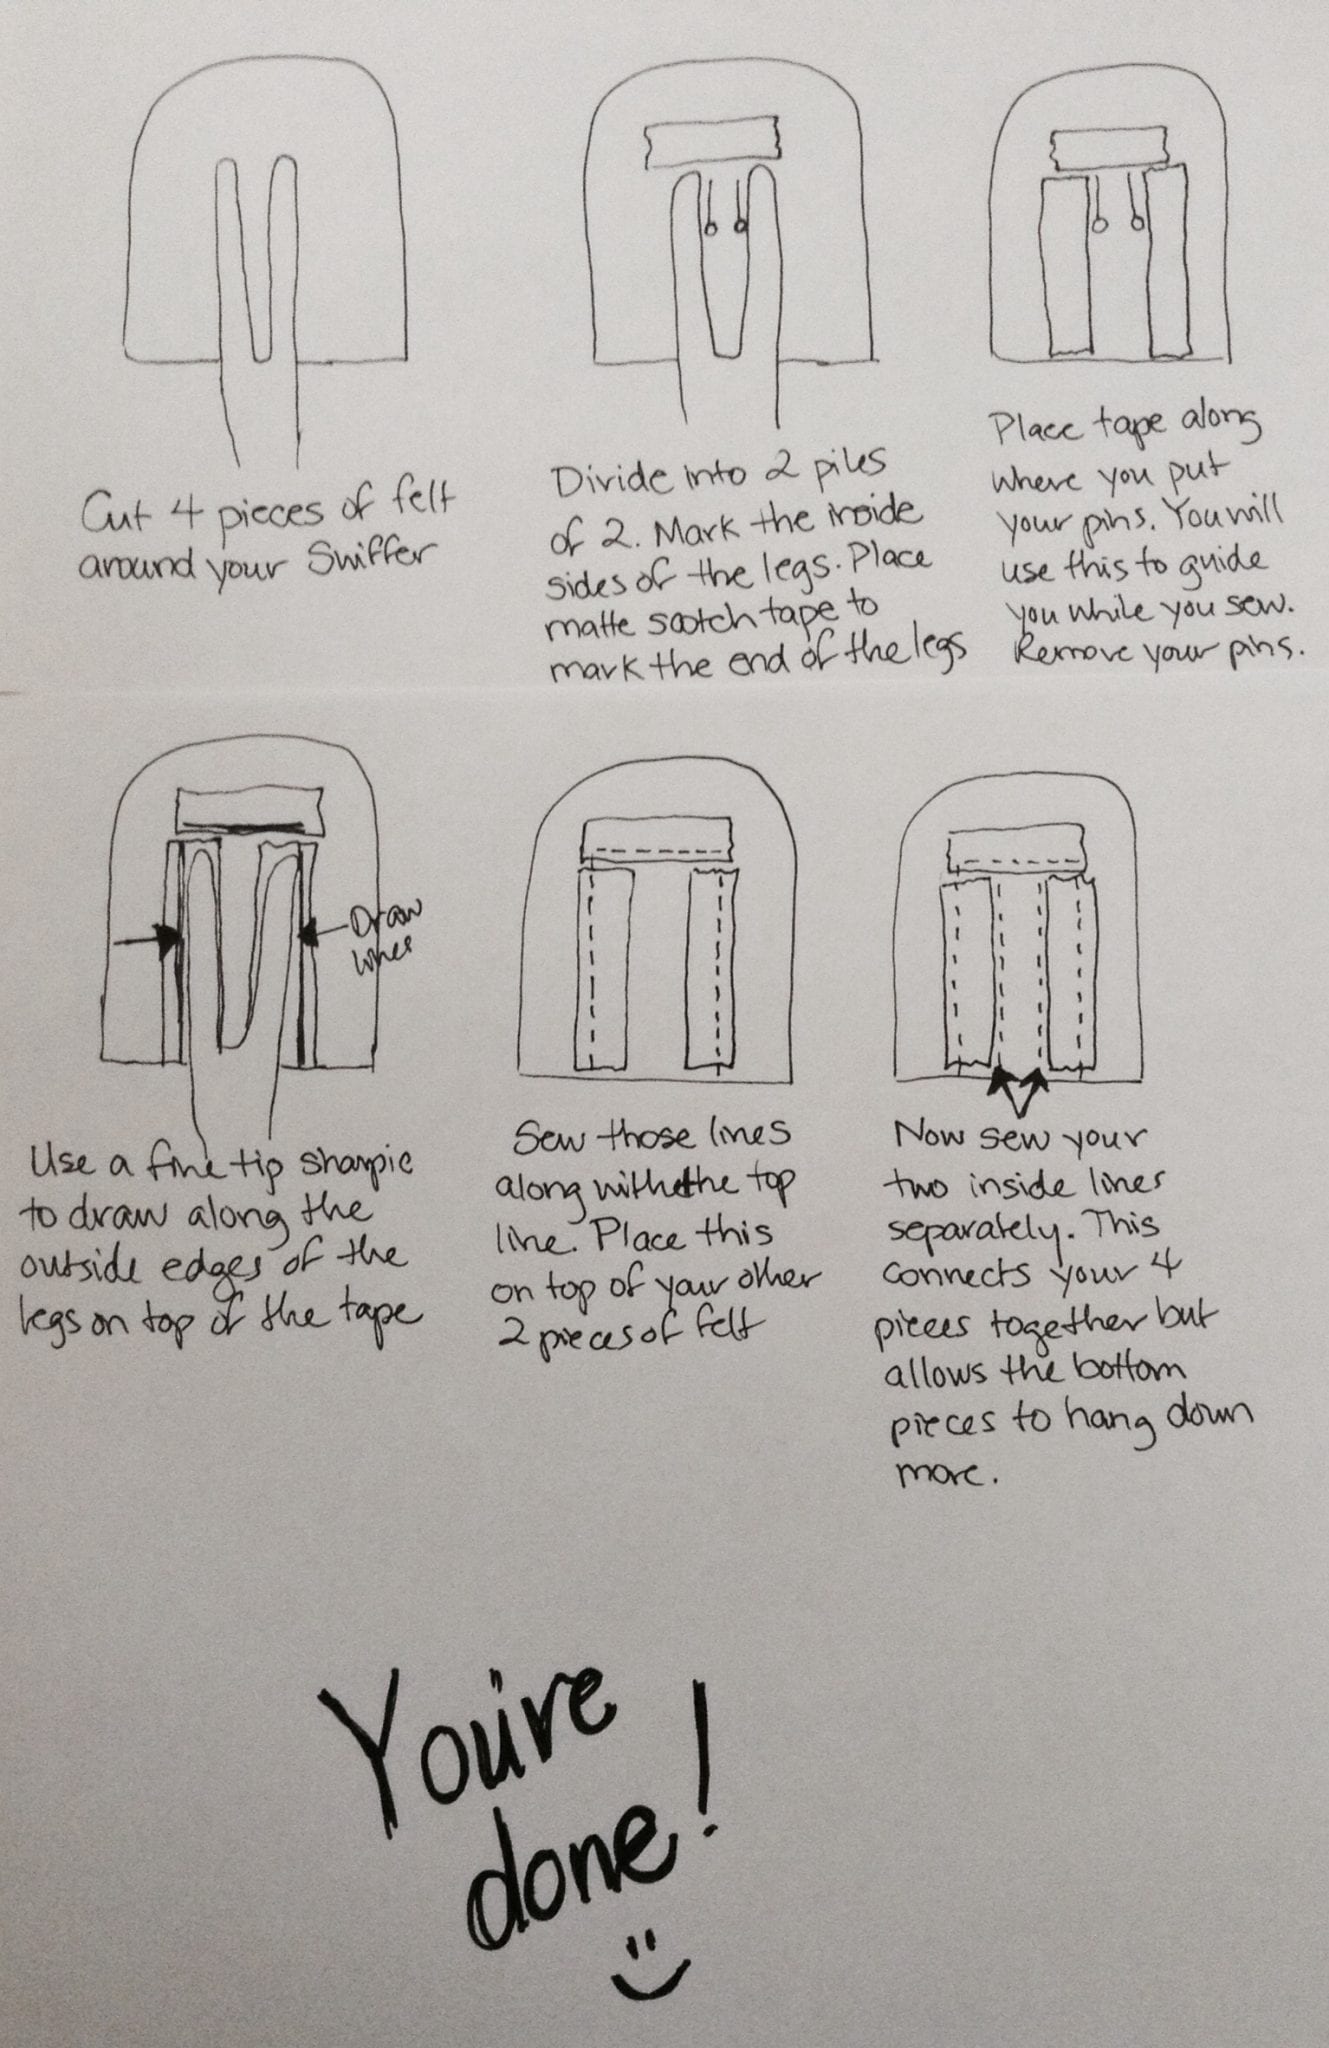 Cut 4 pieces of felt
around your Swiffer
Divide into 2 piles
of 2. Mark the inside
sides of the legs. Place
matte scotch tape to
mark the end of the legs
Place tape along
where you put
your pins. You will
use this to guide
you while you sew.
Remove your pins.
Draw
lines
Use a fine tip sharpie
to draw along the
outside edges of the
legs on top of the tape
Sew those lines
along with the top
line. Place this
on top of your other
2 pieces of felt
Now sew your
two inside lines
separately. This
connects your 4
pieces together but
allows the bottom
pieces to hang down
more.
You're
done!